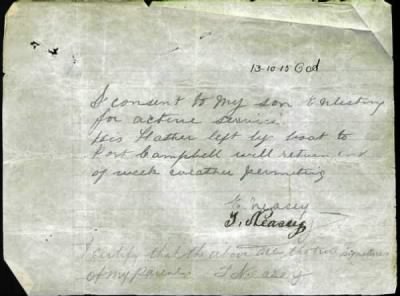 13-10-15
I consent to my son Enlisting
for active service
his Father left by boat to
Port Campbell will return end
of week weather permiting
E Neasey
T. Neasey
I certify that the above are the true signatures
of my parents T Neasey